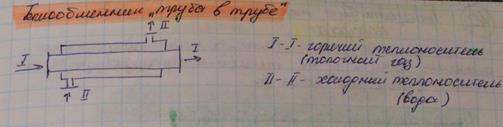 Теплообменник „труба в трубе"
II
I
I
II
I-I- горячий теплоноситель
(топочный газ)
II-II- холодный теплоноситель
(вода)